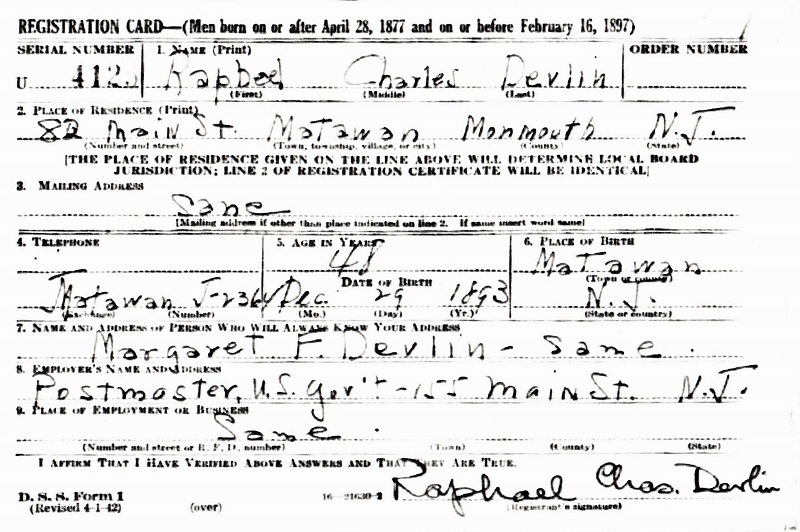 REGISTRATION CARD—(Men born on or after April 28, 1877 and on or before February 16, 1897)
SERIAL NUMBER 1. NAME (Print) ORDER NUMBER
U 412 Raphael Charles Devlin
(First) (Middle) (Last)
2. PLACE OF RESIDENCE (Print)
82 Main St. Matawan Monmouth N.J.
(Number and street) (Town, township, village, or city) (County) (State)
[THE PLACE OF RESIDENCE GIVEN ON THE LINE ABOVE WILL DETERMINE LOCAL BOARD
JURISDICTION; LINE 2 OF REGISTRATION CERTIFICATE WILL BE IDENTICAL]
3. MAILING ADDRESS
Same
[Mailing address if other than place indicated on line 2. If same insert word same]
4. TELEPHONE 5. AGE IN YEARS 6. PLACE OF BIRTH
48 Matawan
DATE OF BIRTH (Town or county)
Matawan J-236 Dec. 29 1893 N.J.
(Exchange) (Number) (Mo.) (Day) (Yr.) (State or country)
7. NAME AND ADDRESS OF PERSON WHO WILL ALWAYS KNOW YOUR ADDRESS
Margaret F. Devlin - Same.
8. EMPLOYER'S NAME AND ADDRESS
Postmaster, U.S. Gov't - 155 Main St. N.J.
9. PLACE OF EMPLOYMENT OR BUSINESS
Same.
(Number and street or R. F. D. number) (Town) (County) (State)
I AFFIRM THAT I HAVE VERIFIED ABOVE ANSWERS AND THAT THEY ARE TRUE.
D. S. S. Form 1
(Revised 4-1-42) (over) 16—21630-2 Raphael Chas. Devlin
(Registrant's signature)